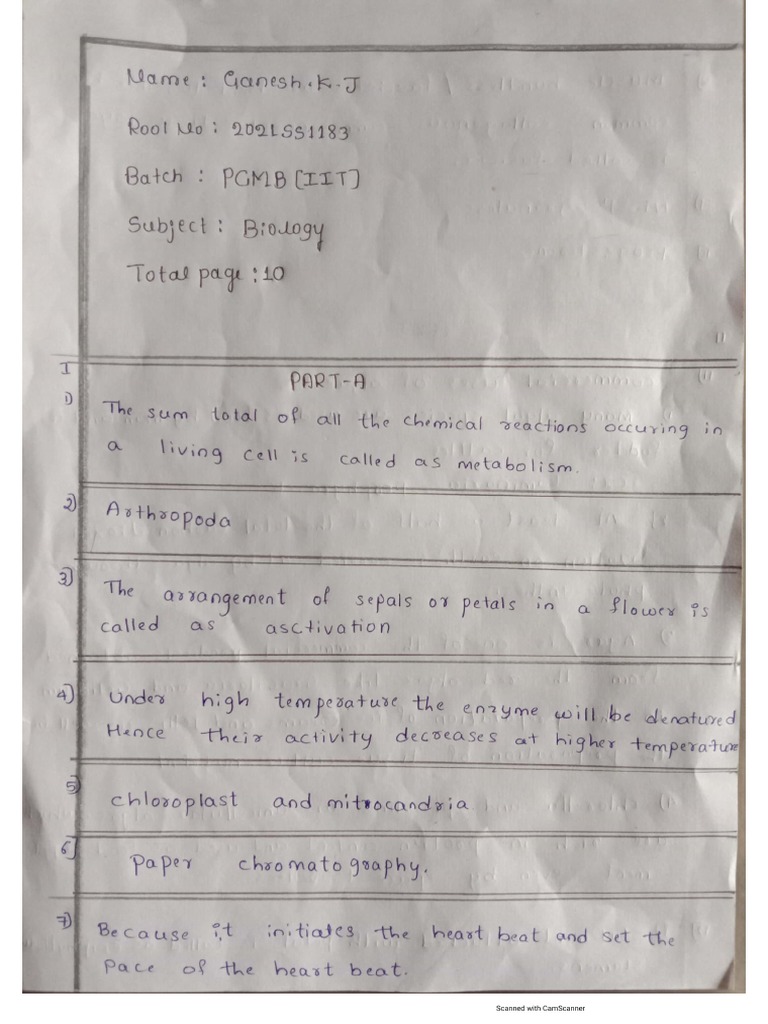 Name : Ganesh.K.J
Rool No : 202LSS1183
Batch : PCMB [IIT]
Subject : Biology
Total page : 10
I
PART-A
1) The sum total of all the chemical reactions occuring in
a living cell is called as metabolism.
2) Arthropoda
3) The arrangement of sepals or petals in a flower is
called as asctivation
4) Under high temperature the enzyme will be denatured
Hence their activity decreases at higher temperature
5) chloroplast and mitrocandria
6] Paper chromatography.
7) Because it initiates the heart beat and set the
Pace of the heart beat.
Scanned with CamScanner